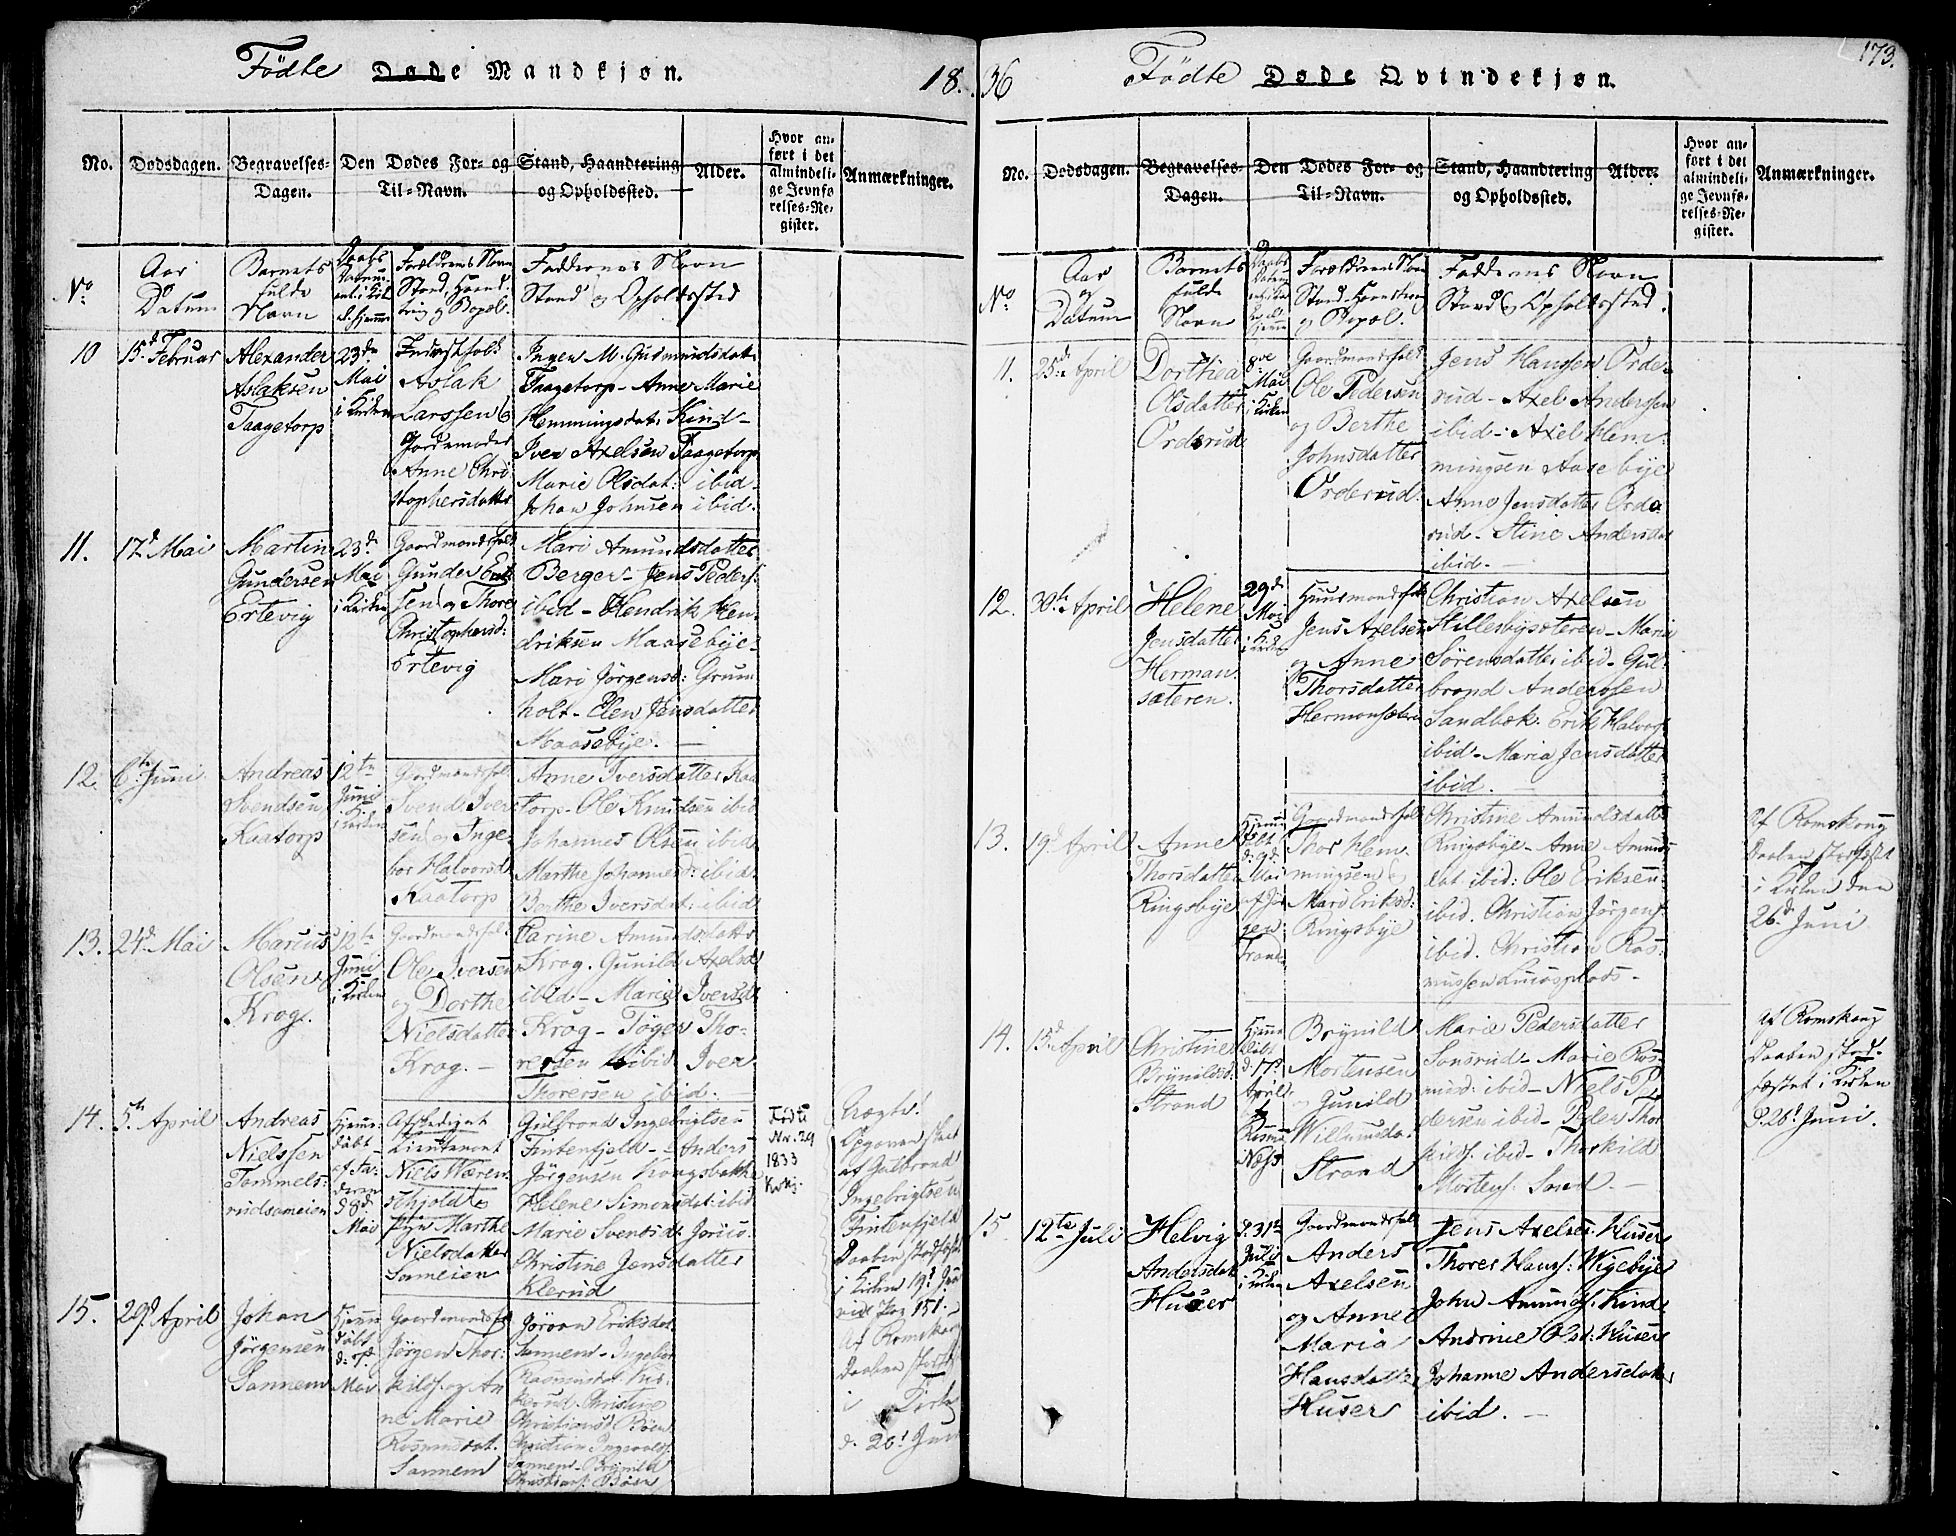 Födte Døde Mandkjøn.
18.
No.
Dødsdagen.
Begravelses-
Dagen.
Den Dødes For- og
Til-Navn.
Stand, Haandtering
og Opholdssted.
Alder.
Hvor an-
ført i det
almindeli-
ge Jevnfø
relses-Re-
gister.
Anmærkninger.
No
Aar
og
Datum
Barnets
fulde
Navn
Forældrenes Navn
Stand, Haand-
tring og Bopæl.
Faddernes Navn
Stand og Opholdssted
10
15d Februar
Alexander
Aslaksen
Taagetorp
23de
Mai
i Kirken
Aslak
Larssen og
Gordemoder
Anne Chri
stophersdatter
Ingen M. Gudmundsdat:
Taagetorp - Anne Marie
Hemmingsdat: Kind -
Iver Axelsen Taagetorp
Marie Olsdat: ibid -
Johan Johnsen ibid:
11.
17d Mai
Martin
Gundersen
Ertevig
23d
Mai
i Kirken
Gaardmandsfolk
Gunder Erik
sen og Thore
Christophersd:
Ertevig
Mari Amundsdatter
Berger - Jens Peders:
ibid - Hendrik Hen-
driksen Maasebye -
Mari Jørgensd: Grum
holt - Elen Jensdatter
Maasebye. -
12.
6te Juni
Andreas
Svendsen
Kaatorp
12te
Juni
i Kirken
Gaardmandsfolk
Svend Iver
sen og Inge-
bor Halvorsd:
Kaatorp
Anne Iversdatter Kaa
torp - Ole Knudsen ibid
Johannes Olsen ibid
Marthe Johannesd: ibid.
Berthe Iversdat: ibid
13.
24d Mai
Marius
Olsen
Krog.
12te
Juni
i Kirken
Gaardmandsfolk
Ole Iversen
og Dorthe
Nielsdatter
Krog. -
Karine Amundsdatter
Krog. Gunild Axelsd
ibid - Maria Iversd:
Krog - Töger Tho-
resen ibid - Iver
Thoresen ibid:
14.
5te April
Andreas
Nielssen
Tommels-
rudsameien
Hjemme-
døbt
d 8d
Mai
Afskediget
Lieutenant
Niels Wæren-
schjold &
Pige Marthe
Nielsdatter
Sameien
Gulbrand Ingebrigtsen
Fintenfjeld - Anders
Jörgensen Krogsbakke
Helene Simensdat: ibid
Marie Svendsd:
Christine Jensdatter
Klerud
Födte
Nr. 29
1833
Uægte!
Opgaven skeet
af Gulbrand
Ingebrigtsen
Fintenfjeld
Daaben stadfæstet
i Kirken 19d Juni
15.
29d April
Johan
Jörgensen
Sannem
Hjemme
døbt
Mai
Gaardmandsfolk
Jörgen Thor-
kilds. og An
ne Marie
Rasmusdat.
Sannem
Jöran Eriksdat
Sannem - Ingebor
Rasmusdat
Christine
Christiansd: Böen
Christian Ingvalds:
Sannem - Brynild
Christians: Böen
Af Romskoug
Daaben stadf:
i Kirken
d. 26d Juni
36
Födte Døde Qvindekjøn.
173.
No.
Dødsdagen.
Begravelses-
Dagen.
Den Dødes For- og
Til-Navn.
Stand, Haandtering
og Opholdssted.
Alder.
Hvor an-
ført i det
almindeli-
ge Jevnfø-
relses-Re-
gister.
Anmærkninger.
No
Aar
og
Datum
Barnets
fulde
Navn
Forældrenes Navn
Stand, Haandtering
og Bopæl.
Faddernes Navn
Stand og Opholdssted.
11.
25de April
Dorthea
Olsdatter
Orderud
8de
Mai
i Kirken
Gaardmandsfolk
Ole Pedersen
og Berthe
Johnsdatter
Orderud.
Jens Hanssen Orde-
rud - Axel Anderssen
ibid - Axel Hem-
mingsen Aasebye
Anne Jensdatter Orde
rud - Stine Andersdat
ibid. -
12.
30te April
Helene
Jensdatter
Herman-
sæteren.
29d
Mai
i Kirken
Huusmandsfolk
Jens Axelsen
og Anne
Thorsdatter
Hermansæteren
Christian Axelsen
Hillesbysæteren - Maria
Sörensdatter ibid - Gul-
brand Anderssen
Sandbæk: Erik Halvors:
ibid - Maria Jensdatter
ibid. -
13.
19d April
Anne
Thorsdatter
Ringsbye
Hjemme
døbt
d. 9d
Mai
af Jör
gen
Gaardmandsfolk
Thor Hem-
mingsen og
Mari Eriksd:
Ringsbye
Christine Amundsdatter
Ringsbye - Anne Amunds
dat. ibid: Ole Eriksen
ibid. Christian Jörgens:
ibid. Christian Ras-
mussen
Af Romskoug
Daaben stadfæstet
i Kirken den
26d Juni
14.
15d April
Christine
Brynildsd:
Strand
Hjemme
døbt
d. 17d
April
af
Rasmus
Næss
Brynild
Mortensen
og Gunild
Strand
Marie Pedersdatter
Sandsrud - Marie Ras-
musd: ibid - Niels Pe
dersen ibid - Peder Thor
kilds. ibid - Thorkild
Mortens: Sand. -
Af Romskoug
Daaben stad-
fæstet i Kirken
d. 26d Juni.
15
12te Juli
Helvig
Andersdat.
Huser
d. 31te
Julii
i Kirken
Gaardmandsfolk
Anders
Axelsen
og Anne
Maria
Hansdatter
Huser
Jens Axelsen Huser
Thorer Hans: Wigebye
John Amunds: Kind
Andrine Olsd: Huser
Johanne Andersdatter
ibid. -